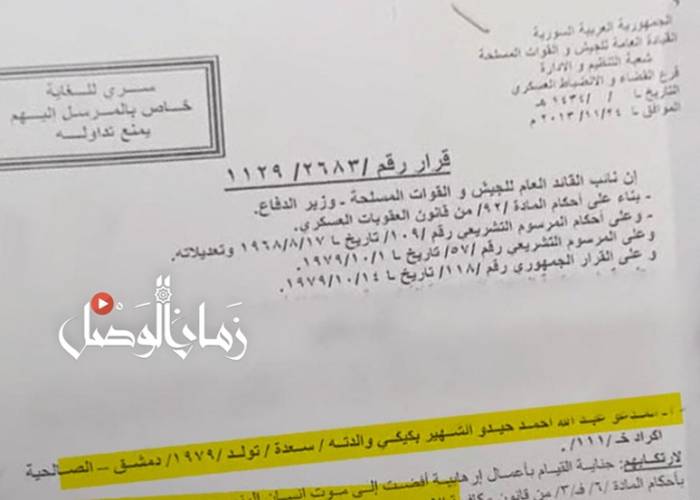 الجمهورية العربية السورية
القيادة العامة للجيش و القوات المسلحة
شعبة التنظيم و الادارة
فرع القضاء و الانضباط العسكري
التاريخ / / ١٤٣٤ هـ
الموافق ٢٠١٣/١١/٢٤ م
سري للغاية
خاص بالمرسل اليهم
يمنع تداوله
قرار رقم /٢٦٨٣/ ١١٢٩
إن نائب القائد العام للجيش و القوات المسلحة ـ وزير الدفاع.
- بناء على أحكام المادة /٩٢/ من قانون العقوبات العسكري.
- وعلى أحكام المرسوم التشريعي رقم /١٠٩/ تاريخ ١٩٦٨/٨/١٧ وتعديلاته.
وعلى المرسوم التشريعي رقم /٥٧/ تاريخ ١٩٧٩/١٠/١.
و على القرار الجمهوري رقم /١١٨/ تاريخ ١٩٧٩/١٠/١٤.
زمان الوصل
عبد الله احمد حيدو الشهير بكيكي والدته / سعدة / تولد /١٩٧٩/ دمشق – الصالحية
اكراد خـ /١١١/.
لارتكابهم: جناية القيام بأعمال إرهابية أفضت إلى موت إنسان
بأحكام المادة /٦/ فـ /٣/ من قانون